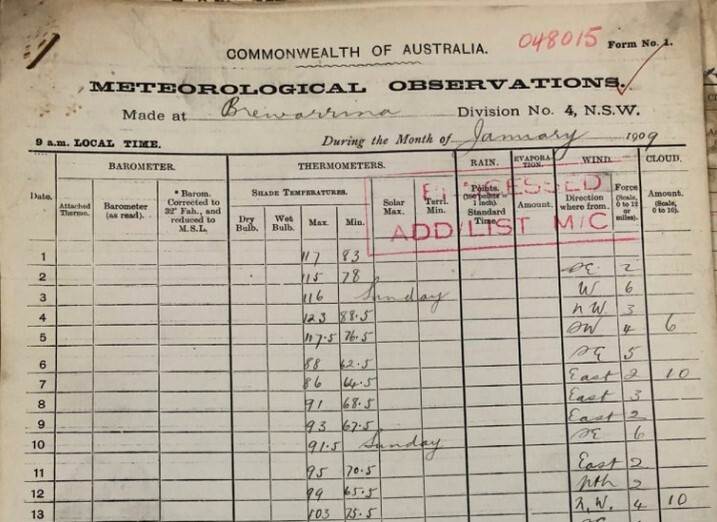 COMMONWEALTH OF AUSTRALIA.
048015 Form No. 1.
METEOROLOGICAL OBSERVATIONS.
Made at Brewarrina Division No. 4, N.S.W.
9 a.m. LOCAL TIME. During the Month of January 1909
Date. BAROMETER. THERMOMETERS. RAIN. EVAPORATION. WIND. CLOUD.
Attached Thermo. Barometer (as read). * Barom. Corrected to 32° Fah., and reduced to M.S.L. SHADE TEMPERATURES. Dry Bulb. Wet Bulb. Max. Min. Solar Max. Terrl. Min. Points. 1 inch). Standard Time. Amount. Direction where from. Force (Scale, 0 to 12 or miles). Amount. (Scale, 0 to 10).
ADD/LIST M/C
1 117 83
2 115 78 SE 2
3 116 Sunday W 6
4 123 88.5 N.W. 3
5 117.5 76.5 SW 4 6
6 88 62.5 SE 5
7 86 64.5 East 2 10
8 91 68.5 East 3
9 93 67.5 East 2
10 91.5 Sunday SE 6
11 95 70.5 East 2
12 99 65.5 Nth 2
13 103 75.5 N.W. 4 10